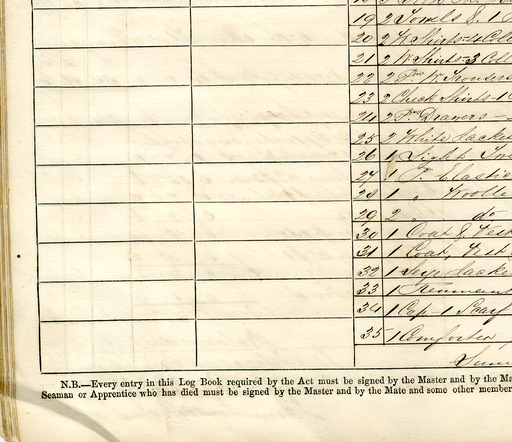 19 2 Towels & 1
20 2 W Shirts - 4 Coll
21 2 W Shirts - 3 Coll
22 2 Prs W. Trousers
23 2 Check Shirts - 1
24 2 Prs Drawers -
25 2 White Jacke
26 1
27 1 Pr Elastic
28 1 " Woolle
29 2 " do
30 1 Coat & Vest
31 1 Coat, Vest
32 1 Jacke
33 1 Remnant
34 1 Cap - 1 Scarf
35 1 Comforter,
N.B.—Every entry in this Log Book required by the Act must be signed by the Master and by the Ma
Seaman or Apprentice who has died must be signed by the Master and by the Mate and some other member